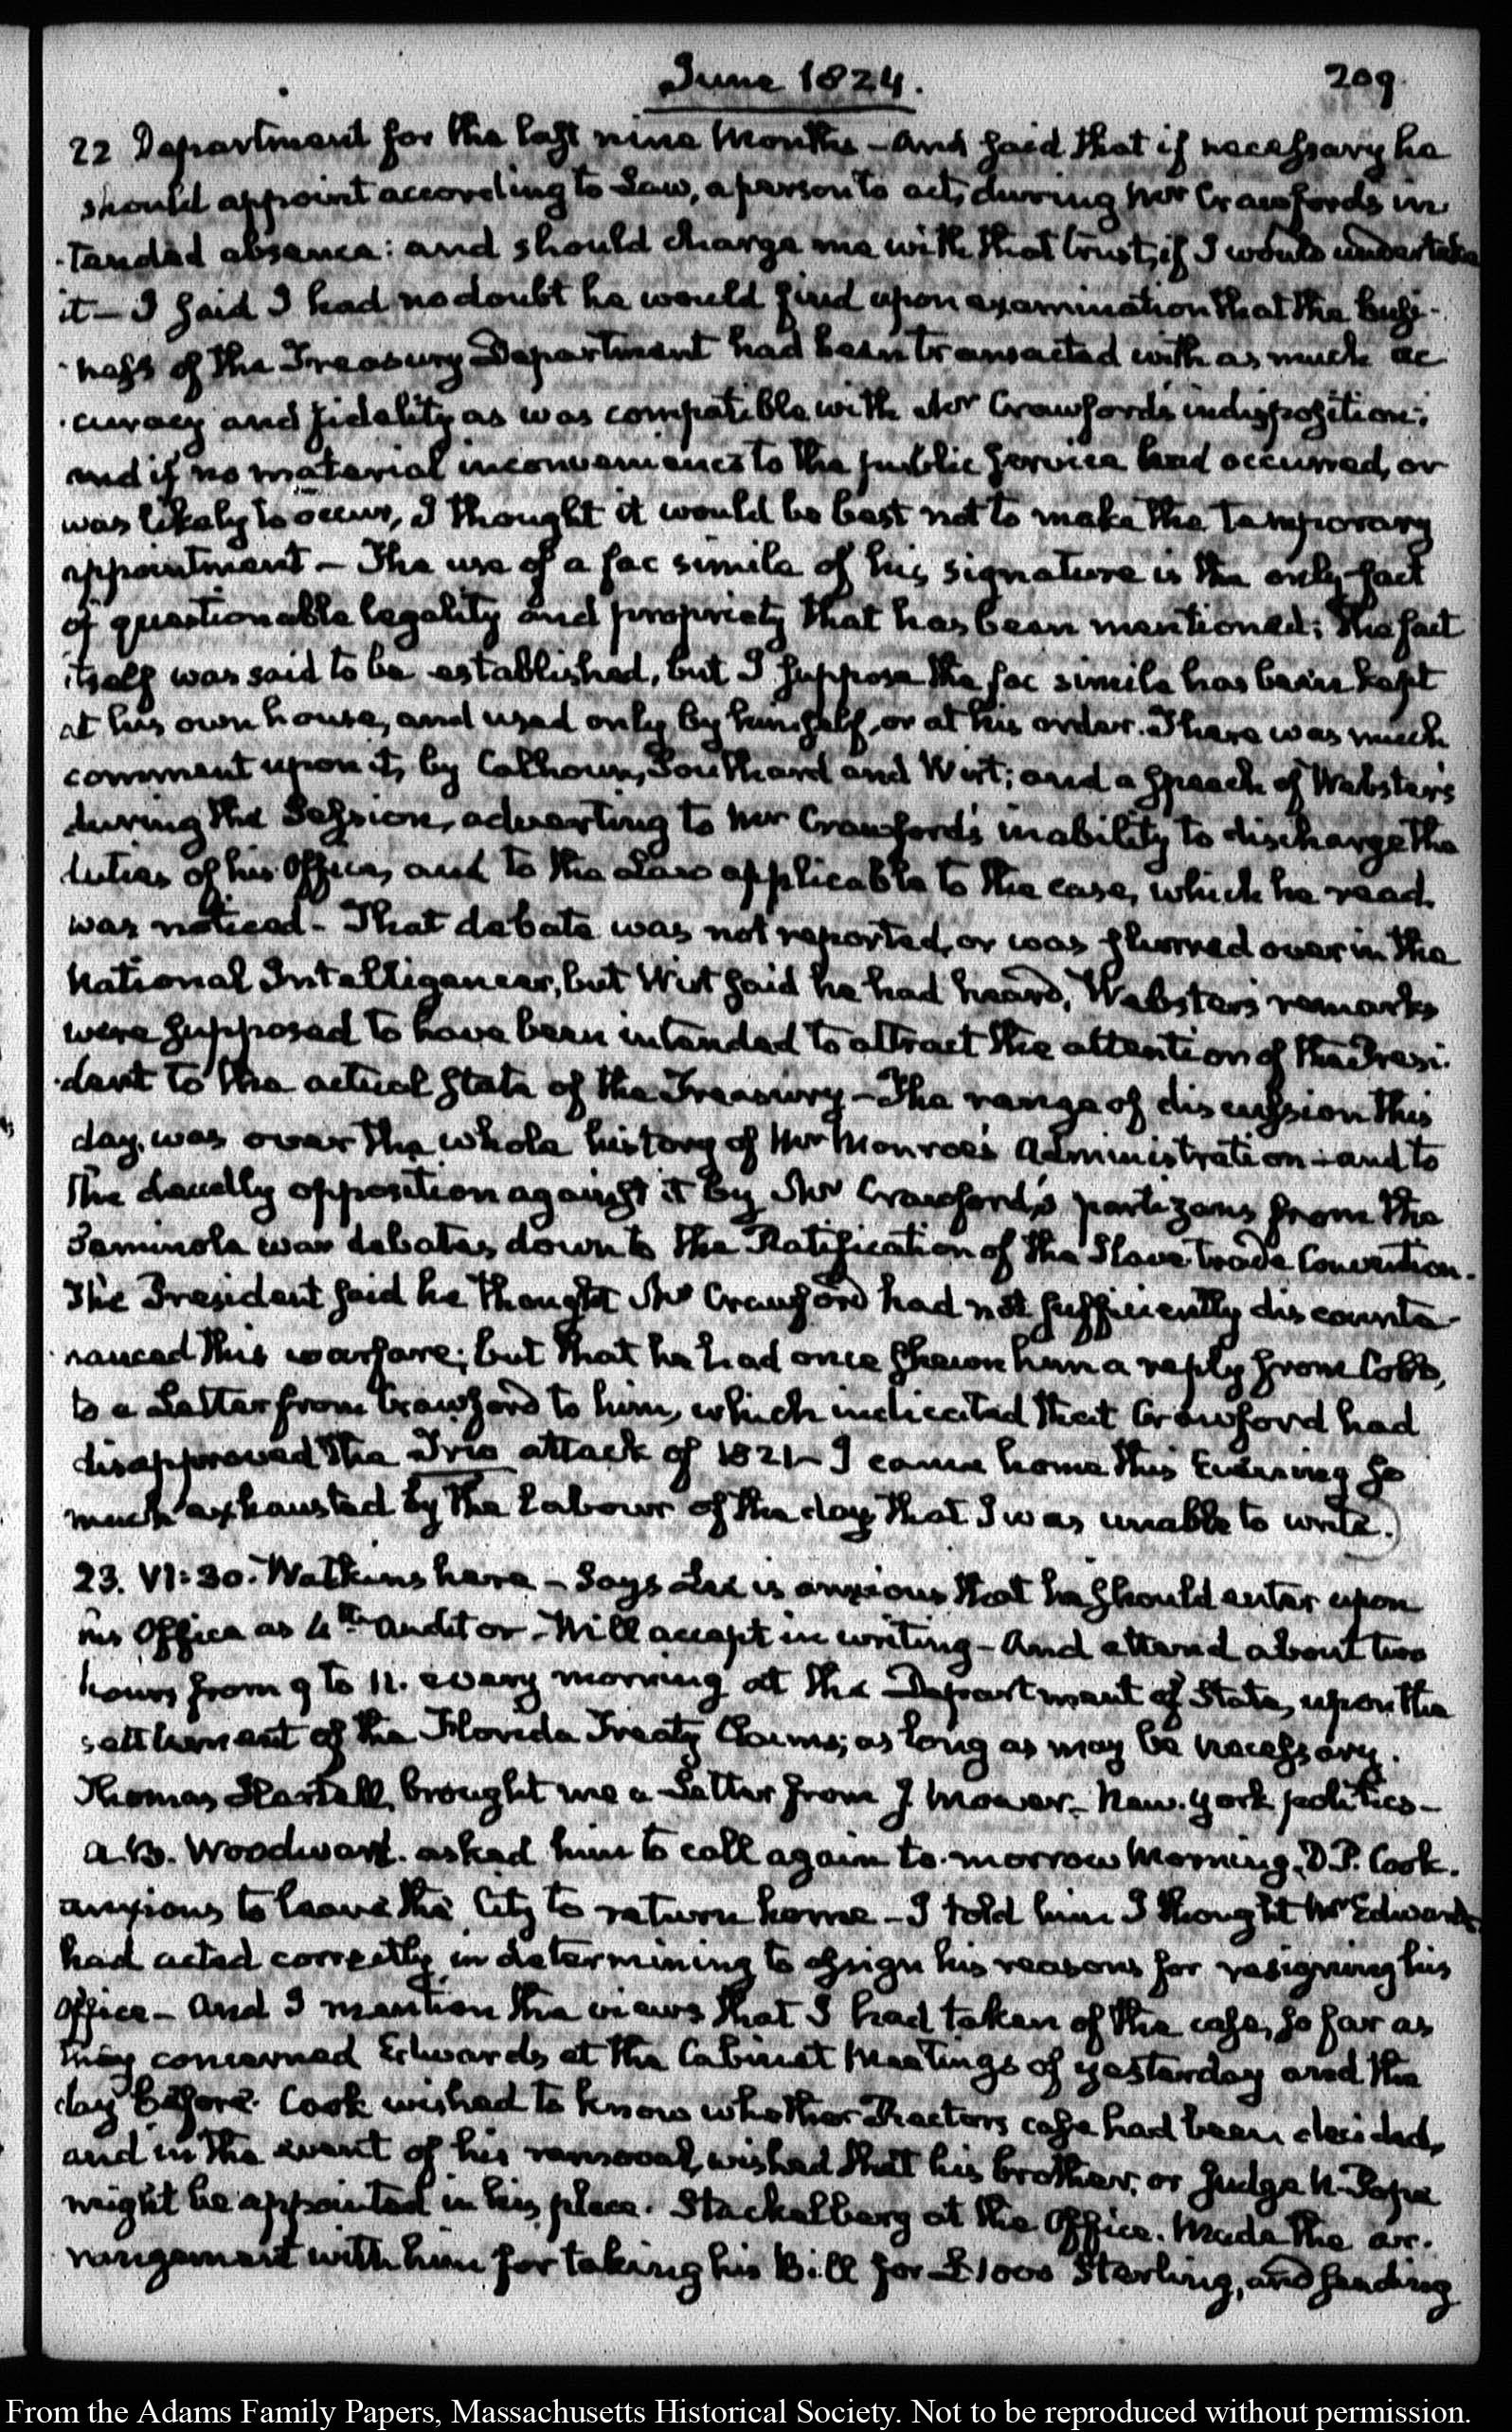 June 1824.
209.
22 Department for the last nine Months — And said that if necessary he
should appoint according to Law, a person to act, during Mr Crawford's in
-tended absence: and should charge me with that trust, if I would undertake
it — I said I had no doubt he would find upon examination that the busi-
-ness of the Treasury Department had been transacted with as much ac
-curacy and fidelity as was compatible with Mr Crawford's indisposition;
and if no material inconvenience to the public service had occurred, or
was likely to occur, I thought it would be best not to make the temporary
appointment — The use of a fac simile of his signature is the only fact
of questionable legality and propriety that has been mentioned; the fact
itself was said to be established, but I suppose the fac simile has been kept
at his own house, and used only by himself, or at his order. There was much
comment upon it, by Calhoun, Southard and Wirt; and a speech of Webster's
during the Session, adverting to Mr Crawford's inability to discharge the
duties of his Office, and to the Law applicable to the case, which he read,
was noticed — That debate was not reported, or was slurred over in the
National Intelligencer, but Wirt said he had heard, Webster's remarks
were supposed to have been intended to attract the attention of the Presi-
-dent to the actual state of the Treasury — The range of discussion this
day, was over the whole history of Mr Monroe's Administration — and to
the deadly opposition against it by Mr Crawford's partizans from the
Seminole war debates, down to the Ratification of the Slave trade Convention.
The President said he thought Mr Crawford had not sufficiently discounte-
-nanced this warfare; but that he had once shewn him a reply from Cobb,
to a Letter from Crawford to him, which indicated that Crawford had
disapproved the Trio attack of 1821 — I came home this Evening so
much exhausted by the labour of the day, that I was unable to write.)
23. VI:30. Watkins here — Says Lee is anxious that he should enter upon
his Office as 4th Auditor — Will accept in writing — And attend about two
hours from 9 to 11. every morning at the Department of State, upon the
settlement of the Florida Treaty Claims; as long as may be necessary.
Thomas brought me a Letter from J Mower — New-York politics —
A. B. Woodward. asked him to call again to-morrow Morning. D. P. Cook.
anxious to leave the City to return home — I told him I thought Mr Edwards
had acted correctly in determining to assign his reasons for resigning his
Office — And I mention the views that I had taken of the case, so far as
they concerned Edwards, at the Cabinet Meetings of yesterday and the
day before. Cook wished to know whether Rectors case had been decided,
and in the event of his removal, wished that his brother, or Judge N. Pope
might be appointed in his place. Stackelberg at the Office. Made the ar-
-rangement with him for taking his Bill for £1000 Sterling, and sending
From the Adams Family Papers, Massachusetts Historical Society. Not to be reproduced without permission.